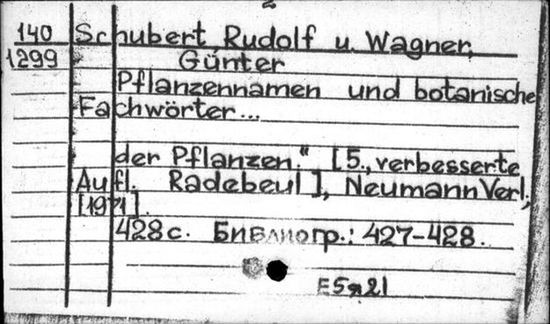 2
140 Schubert, Rudolf u. Wagner,
1299 Günter
Pflanzennamen und botanische
Fachwörter...
der Pflanzen." [5., verbesserte
Aufl. Radebeul], Neumann Verl.,
[1971].
428 с. Библиогр.: 427-428.
Е5я21